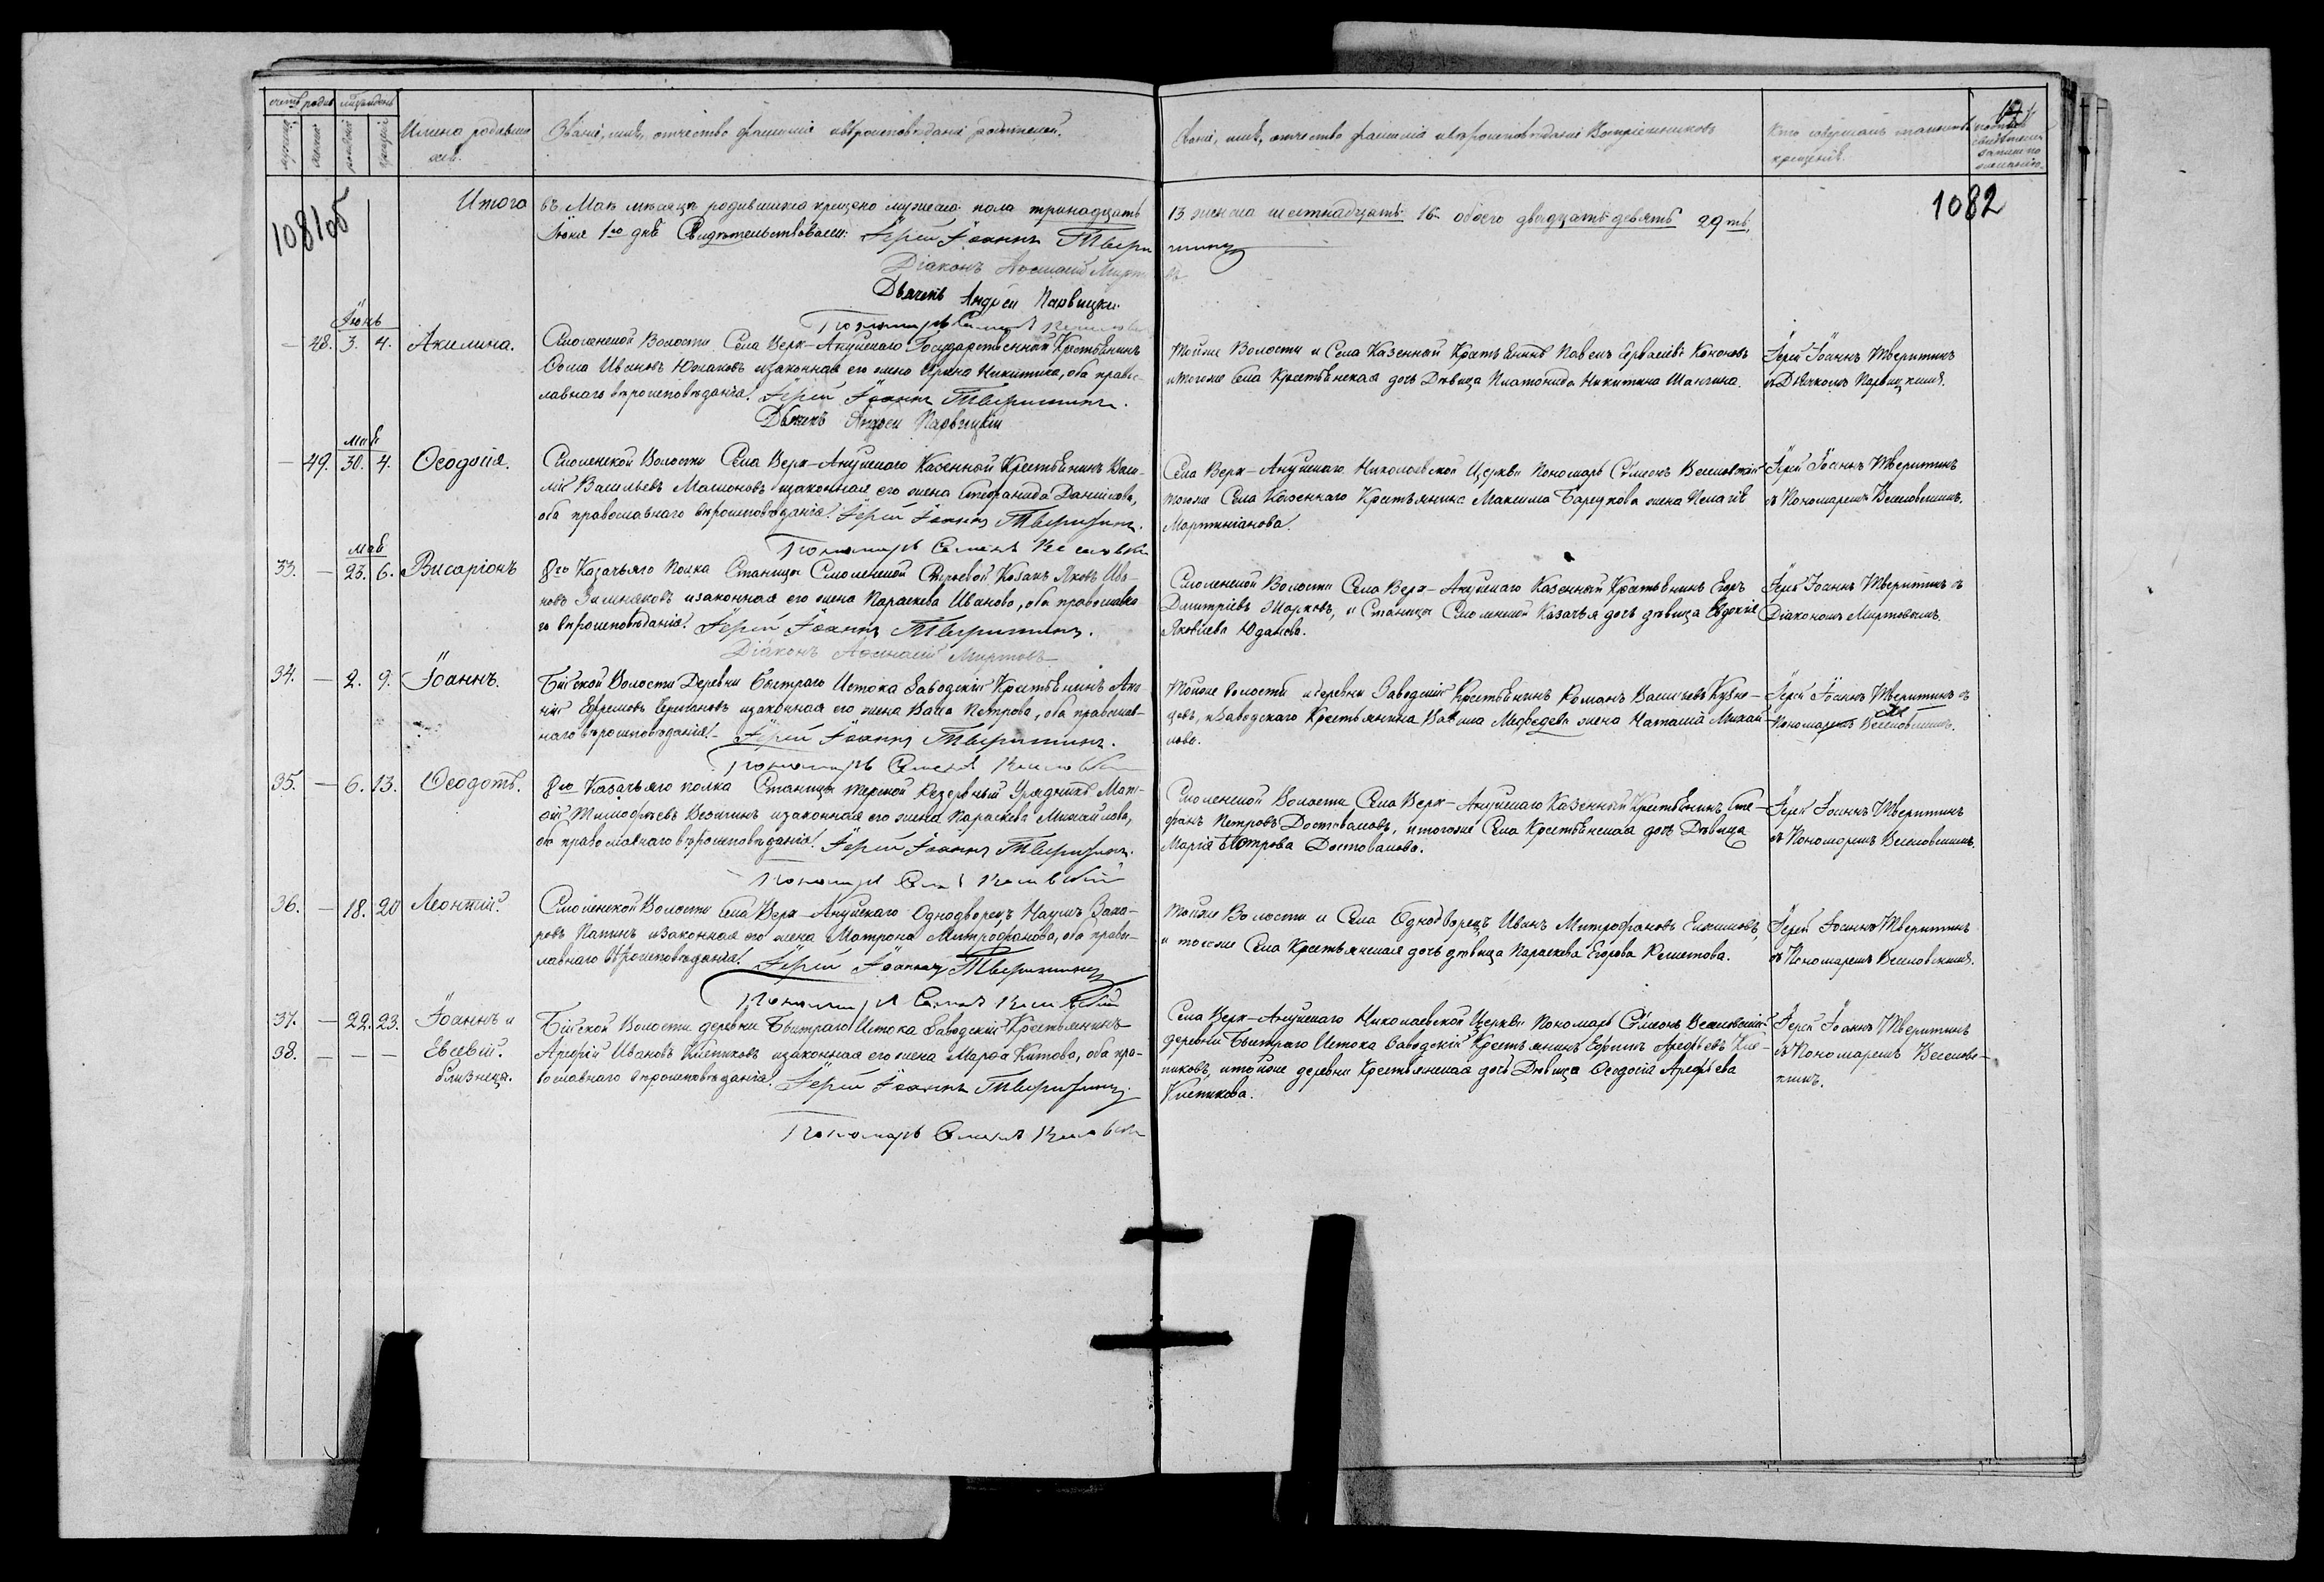 счетъ родив
мѣсяцъ и день
мужеска
женска
рожденія
крещенія
Имена родивших
ся.
Званіе, имя, отчество фамилія и вѣроисповѣданіе родителей.
Званіе, имя, отчество фамилія и вѣроисповѣданіе Воспріемниковъ
Кто совершалъ таинство
крещенія.
1081об
1082
Итого въ Маѣ мѣсяцѣ родившихся крещено мужеска пола тринадцать
13 женска шестнадцать 16 обоего двадцать девять 29ть,
Іюня 1го дня Свидѣтельствовали: Іерей Іоаннъ Тверитинъ
Діаконъ Афанасій Миртовъ
Дьячекъ Андрей Парвицкій
Пономарь
Іюнь
— 48. 3. 4. Акилина.
Смоленской Волости Села Верх-Ануйскаго Государственный Крестьянинъ
Фома Ивановъ Южаковъ и законная его жена Ирина Никитина, оба право-
славнаго вѣроисповѣданія. Іерей Іоаннъ Тверитинъ.
Дьячекъ Андрей Парвицкій
Тойже Волости и Села Казенный Крестьянинъ Павелъ Кононовъ
и тогоже Села Крестьянская дочь Дѣвица Платонида Никитина Шангина.
Іерей Іоаннъ Тверитинъ
съ Дьячкомъ Парвицкимъ.
Май
— 49. 30. 4. Ѳеодосія.
Смоленской Волости Села Верх-Ануйскаго Казенный Крестьянинъ Васи-
лій Васильевъ и законная его жена Стефанида Данилова,
оба православнаго вѣроисповѣданія. Іерей Іоаннъ Тверитинъ.
Пономарь Семенъ Веселовскій
Села Верх-Ануйскаго Николаевской Церкви Пономарь Сѵмеонъ Веселовскій
тогоже Села Казеннаго Крестьянина Максима жена Пелагія
Мартиніанова.
Іерей Іоаннъ Тверитинъ
съ Пономаремъ Веселовскимъ.
Май
33. — 23. 6. Висаріонъ
8го Казачьяго Полка Станицы Смоленской Козакъ Яковъ Ива-
новъ и законная его жена Параскева Иванова, оба православна
го вѣроисповѣданія. Іерей Іоаннъ Тверитинъ.
Діаконъ Афанасій Миртовъ
Смоленской Волости Села Верх-Ануйскаго Казенный Крестьянинъ Егоръ
Дмитріевъ Марковъ, и Станицы Смоленской Казачья дочь дѣвица Евдокія
Яковлева Юданова.
Іерей Іоаннъ Тверитинъ съ
Діакономъ Миртовымъ.
34. — 2. 9. Іоаннъ.
Бійской Волости Деревни Быстраго Истока Заводскій Крестьянинъ
Ефремовъ и законная его жена Васса Петрова, оба православ-
наго вѣроисповѣданія. Іерей Іоаннъ Тверитинъ.
Пономарь Семенъ Веселовскій
Тойже волости и деревни Заводскій Крестьянинъ Романъ Васильевъ Кузне-
цовъ, и Заводскаго Крестьянина Медведева жена Наталія Михай-
лова.
Іерей Іоаннъ Тверитинъ съ
Пономаремъ Веселовскимъ.
35. — 6. 13. Ѳеодотъ.
8го Казачьяго полка Станицы Резервный Урядникъ Мат-
фій Тимофеевъ и законная его жена Параскева Михайлова,
оба православнаго вѣроисповѣданія. Іерей Іоаннъ Тверитинъ.
Пономарь Семенъ Веселовскій
Смоленской Волости Села Верх-Ануйскаго Казенный Крестьянинъ Сте-
фанъ Петровъ Достоваловъ, и тогоже Села Крестьянская дочь Дѣвица
Марія Петрова Достовалова.
Іерей Іоаннъ Тверитинъ
съ Пономаремъ Веселовскимъ.
36. — 18. 20 Леонтій.
Смоленской Волости Села Верх-Ануйскаго Однодворецъ Наумъ Заха-
ровъ Папинъ и законная его жена Матрона Митрофанова, оба право-
славнаго вѣроисповѣданія. Іерей Іоаннъ Тверитинъ
Пономарь Семенъ Веселовскій
Тойже Волости и Села Однодворецъ Иванъ Митрофановъ
и тогоже Села Крестьянская дочь дѣвица Параскева Егорова Решетова.
Іерей Іоаннъ Тверитинъ
съ Пономаремъ Веселовскимъ.
37. — 22. 23. Іоаннъ и
38. — — — Евсевій.
близнецы.
Бійской Волости деревни Быстраго Истока Заводскій Крестьянинъ
Арефій Ивановъ Клепиковъ и законная его жена Марфа Титова, оба пра-
вославнаго вѣроисповѣданія. Іерей Іоаннъ Тверитинъ.
Пономарь Семенъ Веселовскій
Села Верх-Ануйскаго Николаевской Церкви Пономарь Сѵмеонъ Веселовскій
деревни Быстраго Истока Заводскій Крестьянинъ Ефимъ Арефьевъ Кле-
пиковъ, и тойже деревни Крестьянская дочь Дѣвица Ѳеодосія Арефьева
Клепикова.
Іерей Іоаннъ Тверитинъ
съ Пономаремъ Веселов-
скимъ.